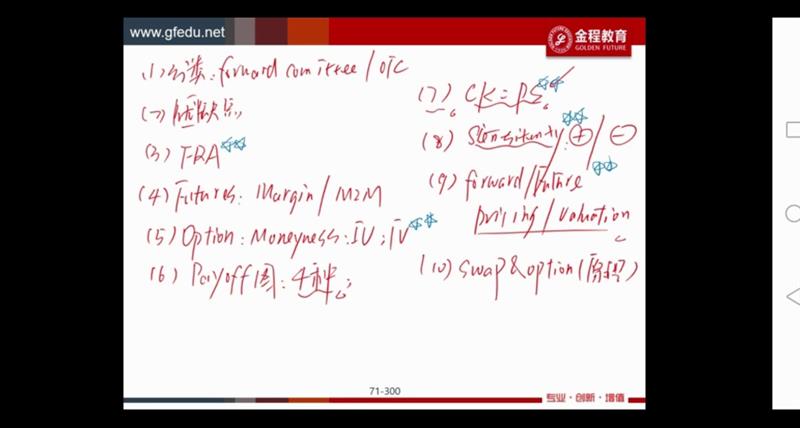 www.gfedu.net
金程教育
GOLDEN FUTURE
(1) 分类: forward comitree / OTC
(2) 优缺点
(3) FRA
(4) Futures: Margin / M2M
(5) Option: Moneyness: IV; TV
(6) Payoff图: 4种
(7) CK=PS
(8) Sensitivity: + / -
(9) forward / Future
pricing / valuation
(10) swap & option (原理)
71-300
专业·创新·增值